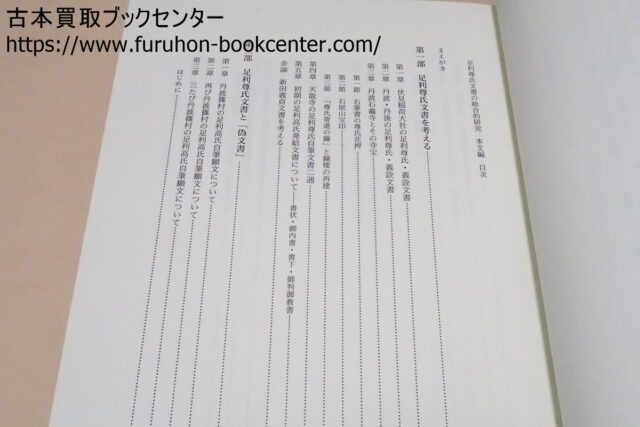 古本買取ブックセンター
https://www.furuhon-bookcenter.com/
足利尊氏文書の総合的研究 本文編 目次
まえがき
第一部 足利尊氏文書を考える
第一章 伏見稲荷大社の足利尊氏・義詮文書
第二章 丹波・丹後の足利尊氏・義詮文書
第三章 丹波石龕寺とその寺宝
第一節 右筆書の尊氏花押
第二節 石屋山宝印
第三節 「尊氏寄進の鐘」と鐘楼の再建
第四章 天龍寺の足利尊氏自筆文書二通
第五章 初期の足利高氏発給文書について――書状・御内書・書下・御判御教書――
余論 新田義貞文書を考える
部 足利尊氏文書と「偽文書」
第一章 丹波篠村の足利高氏自筆願文について
第二章 再び丹波篠村の足利高氏自筆願文について
第三章 三たび丹波篠村の足利高氏自筆願文について
はじめに